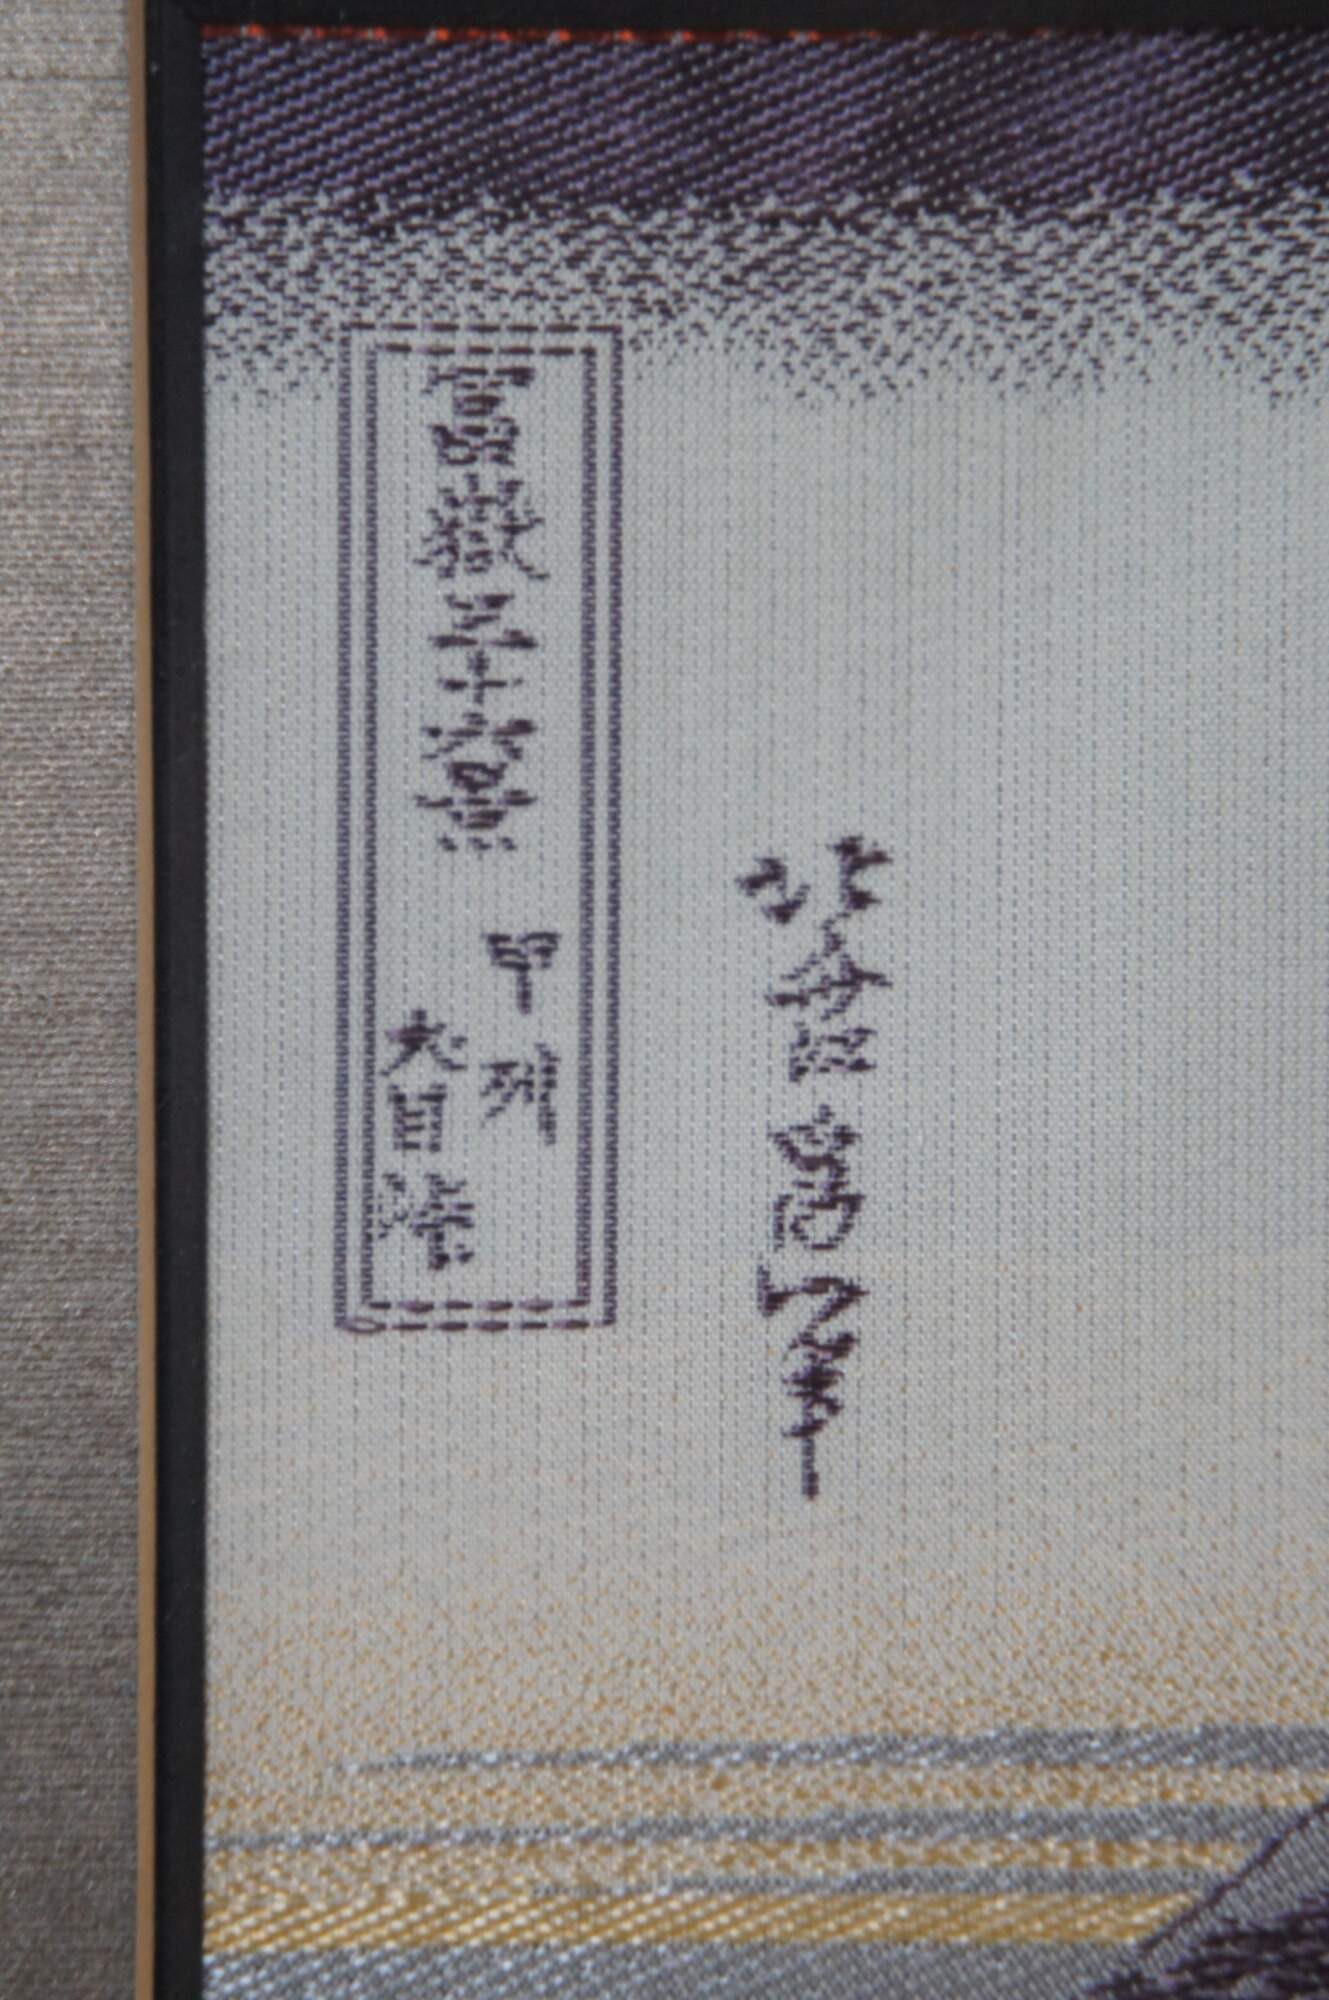 冨嶽三十六景
甲州
犬目峠
北斎為一筆